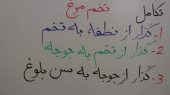 تکامل
تخم مرغ
1- گذار از نطفه به تخم
2- گذار از تخم به جوجه
3- گذار از جوجه به سن بلوغ